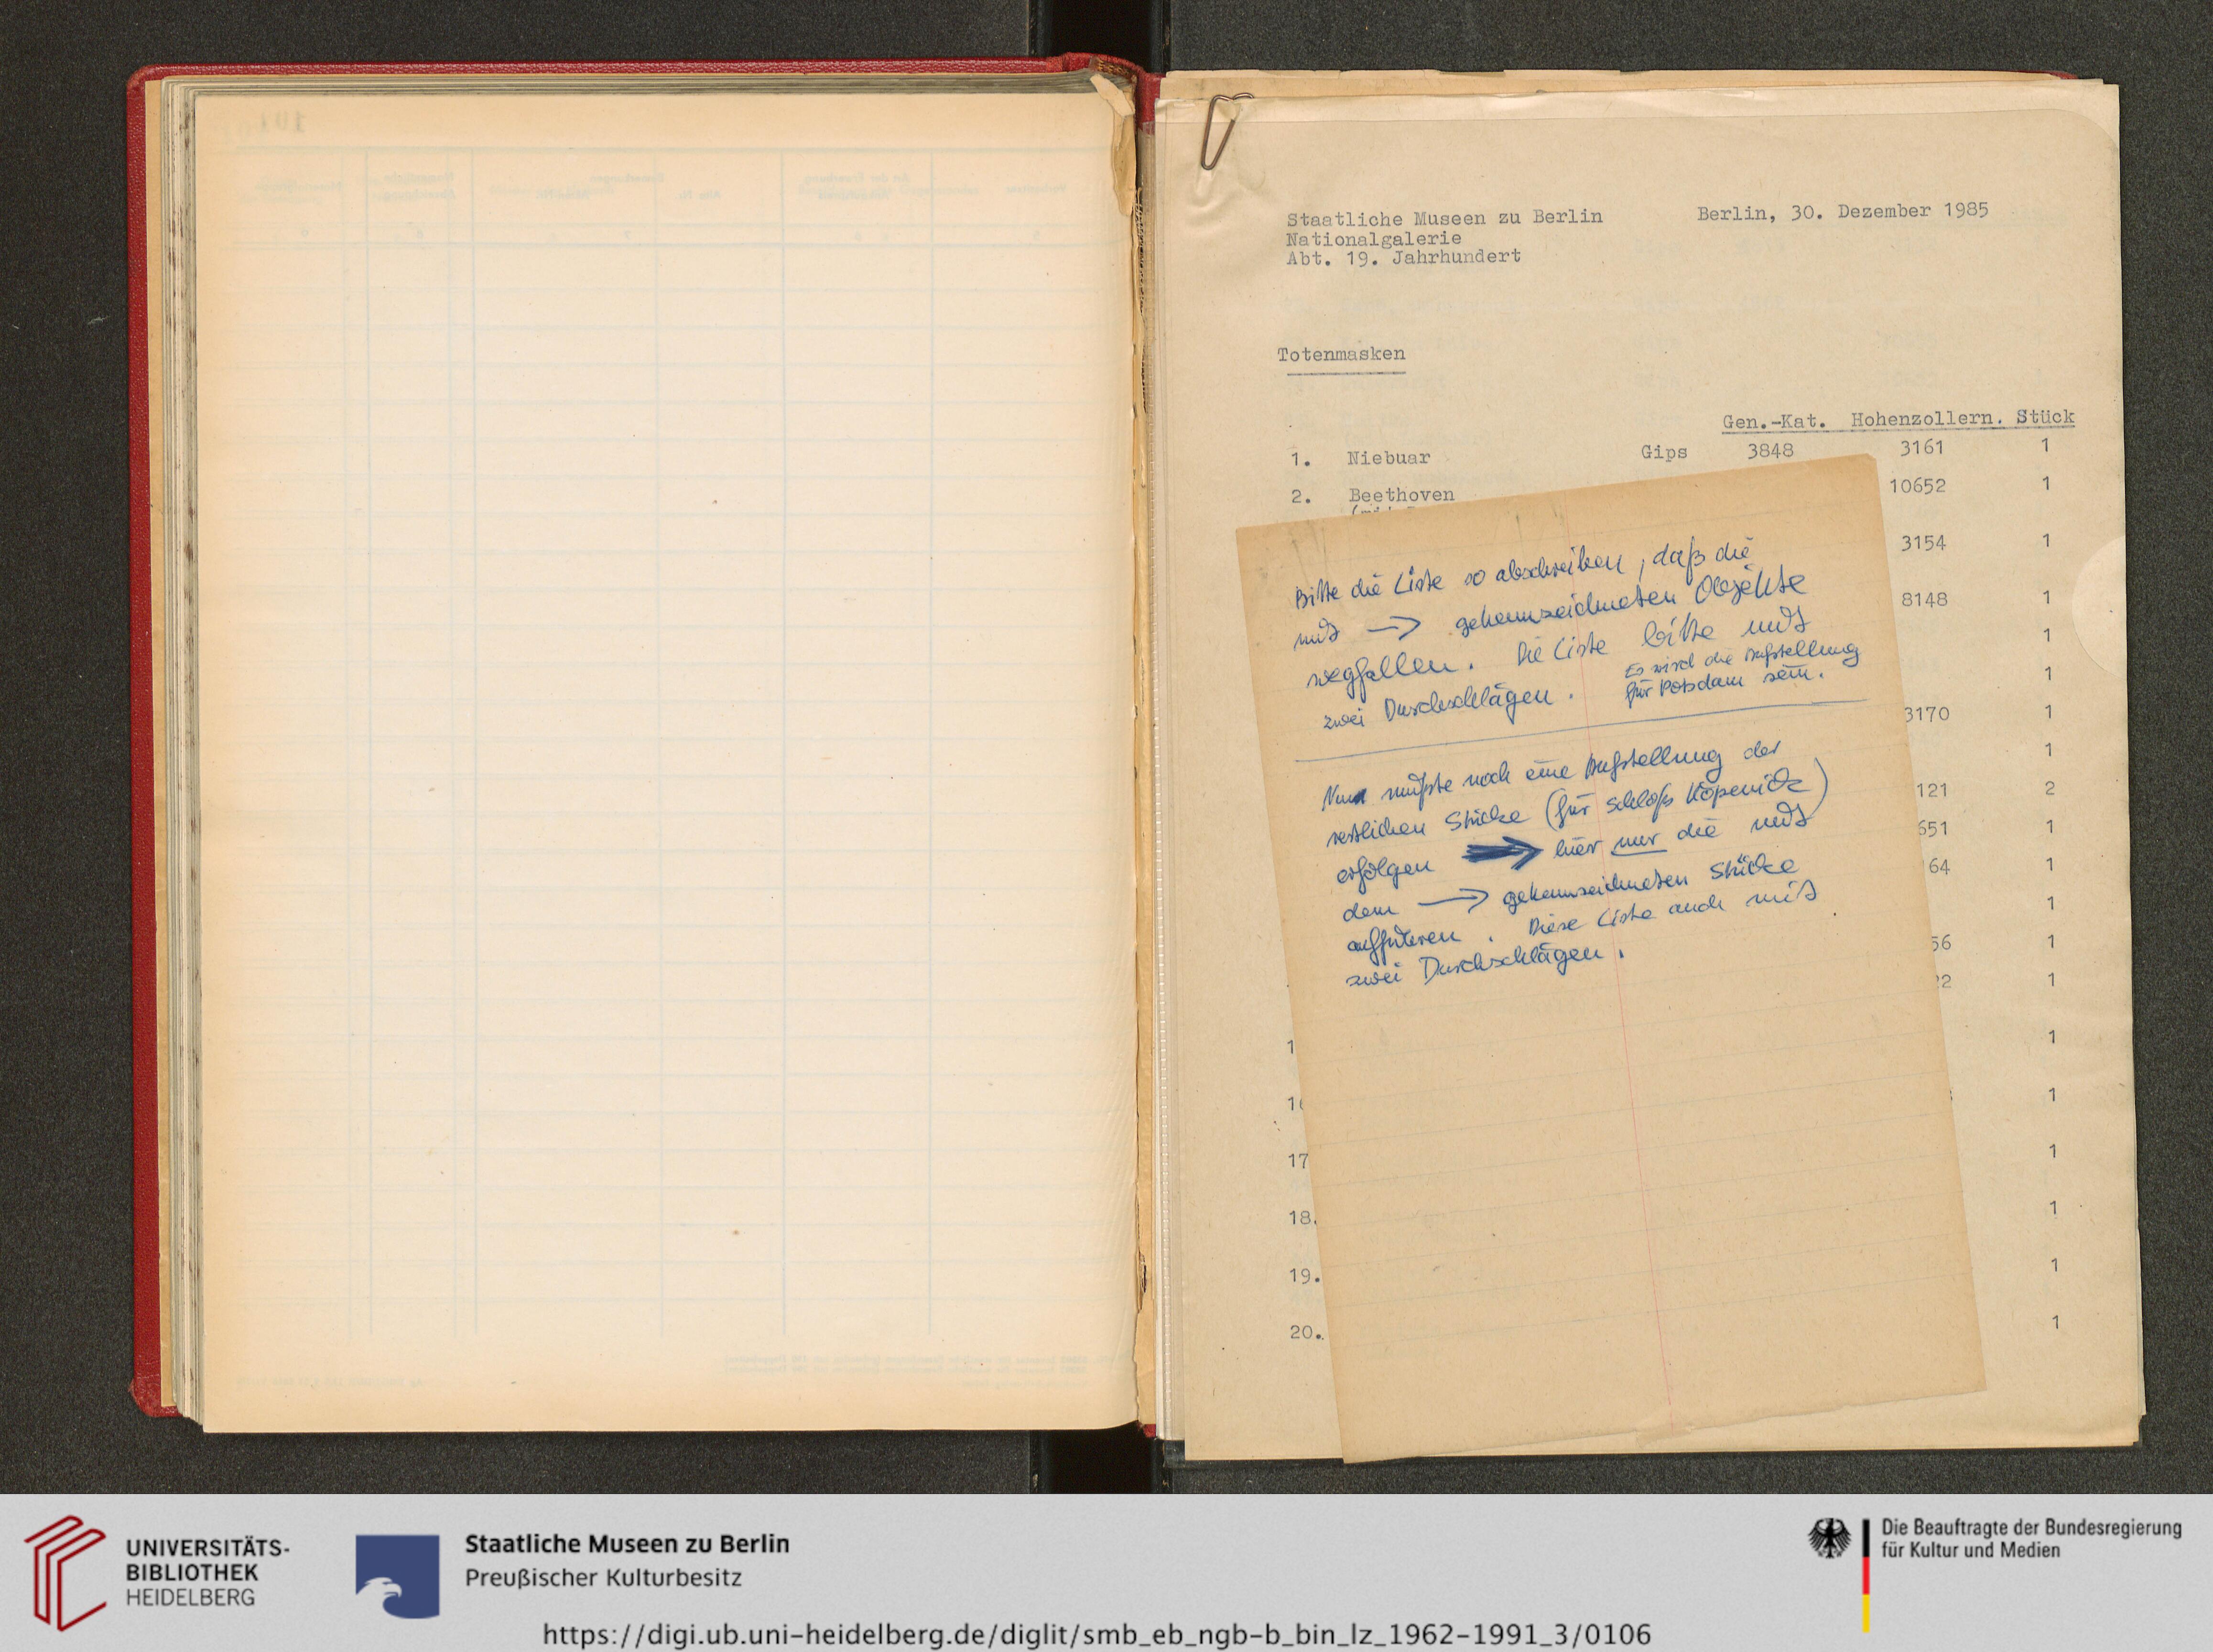 Staatliche Museen zu Berlin Berlin, 30. Dezember 1985
Nationalgalerie
Abt. 19. Jahrhundert
Totenmasken
Gen.-Kat. Hohenzollern. Stück
1. Niebuar Gips 3848 3161 1
2. Beethoven 10652 1
3154 1
8148 1
1
1
3170 1
1
121 2
651 1
64 1
1
56 1
22 1
1
1
1
17 1
18. 1
19. 1
20. 1
Bitte die Liste so abschreiben, daß die
mit → gekennzeichneten Objekte
wegfallen. Die Liste bitte mit
zwei Durchschlägen. Es wird die Aufstellung
für Potsdam sein.
Nun müßte noch eine Aufstellung der
restlichen Stücke (für Schloß Köpenick)
erfolgen → hier nur die mit
dem → gekennzeichneten Stücke
aufführen. Diese Liste auch mit
zwei Durchschlägen.
UNIVERSITÄTS-
BIBLIOTHEK
HEIDELBERG
Staatliche Museen zu Berlin
Preußischer Kulturbesitz
Die Beauftragte der Bundesregierung
für Kultur und Medien
https://digi.ub.uni-heidelberg.de/diglit/smb_eb_ngb-b_bin_lz_1962-1991_3/0106